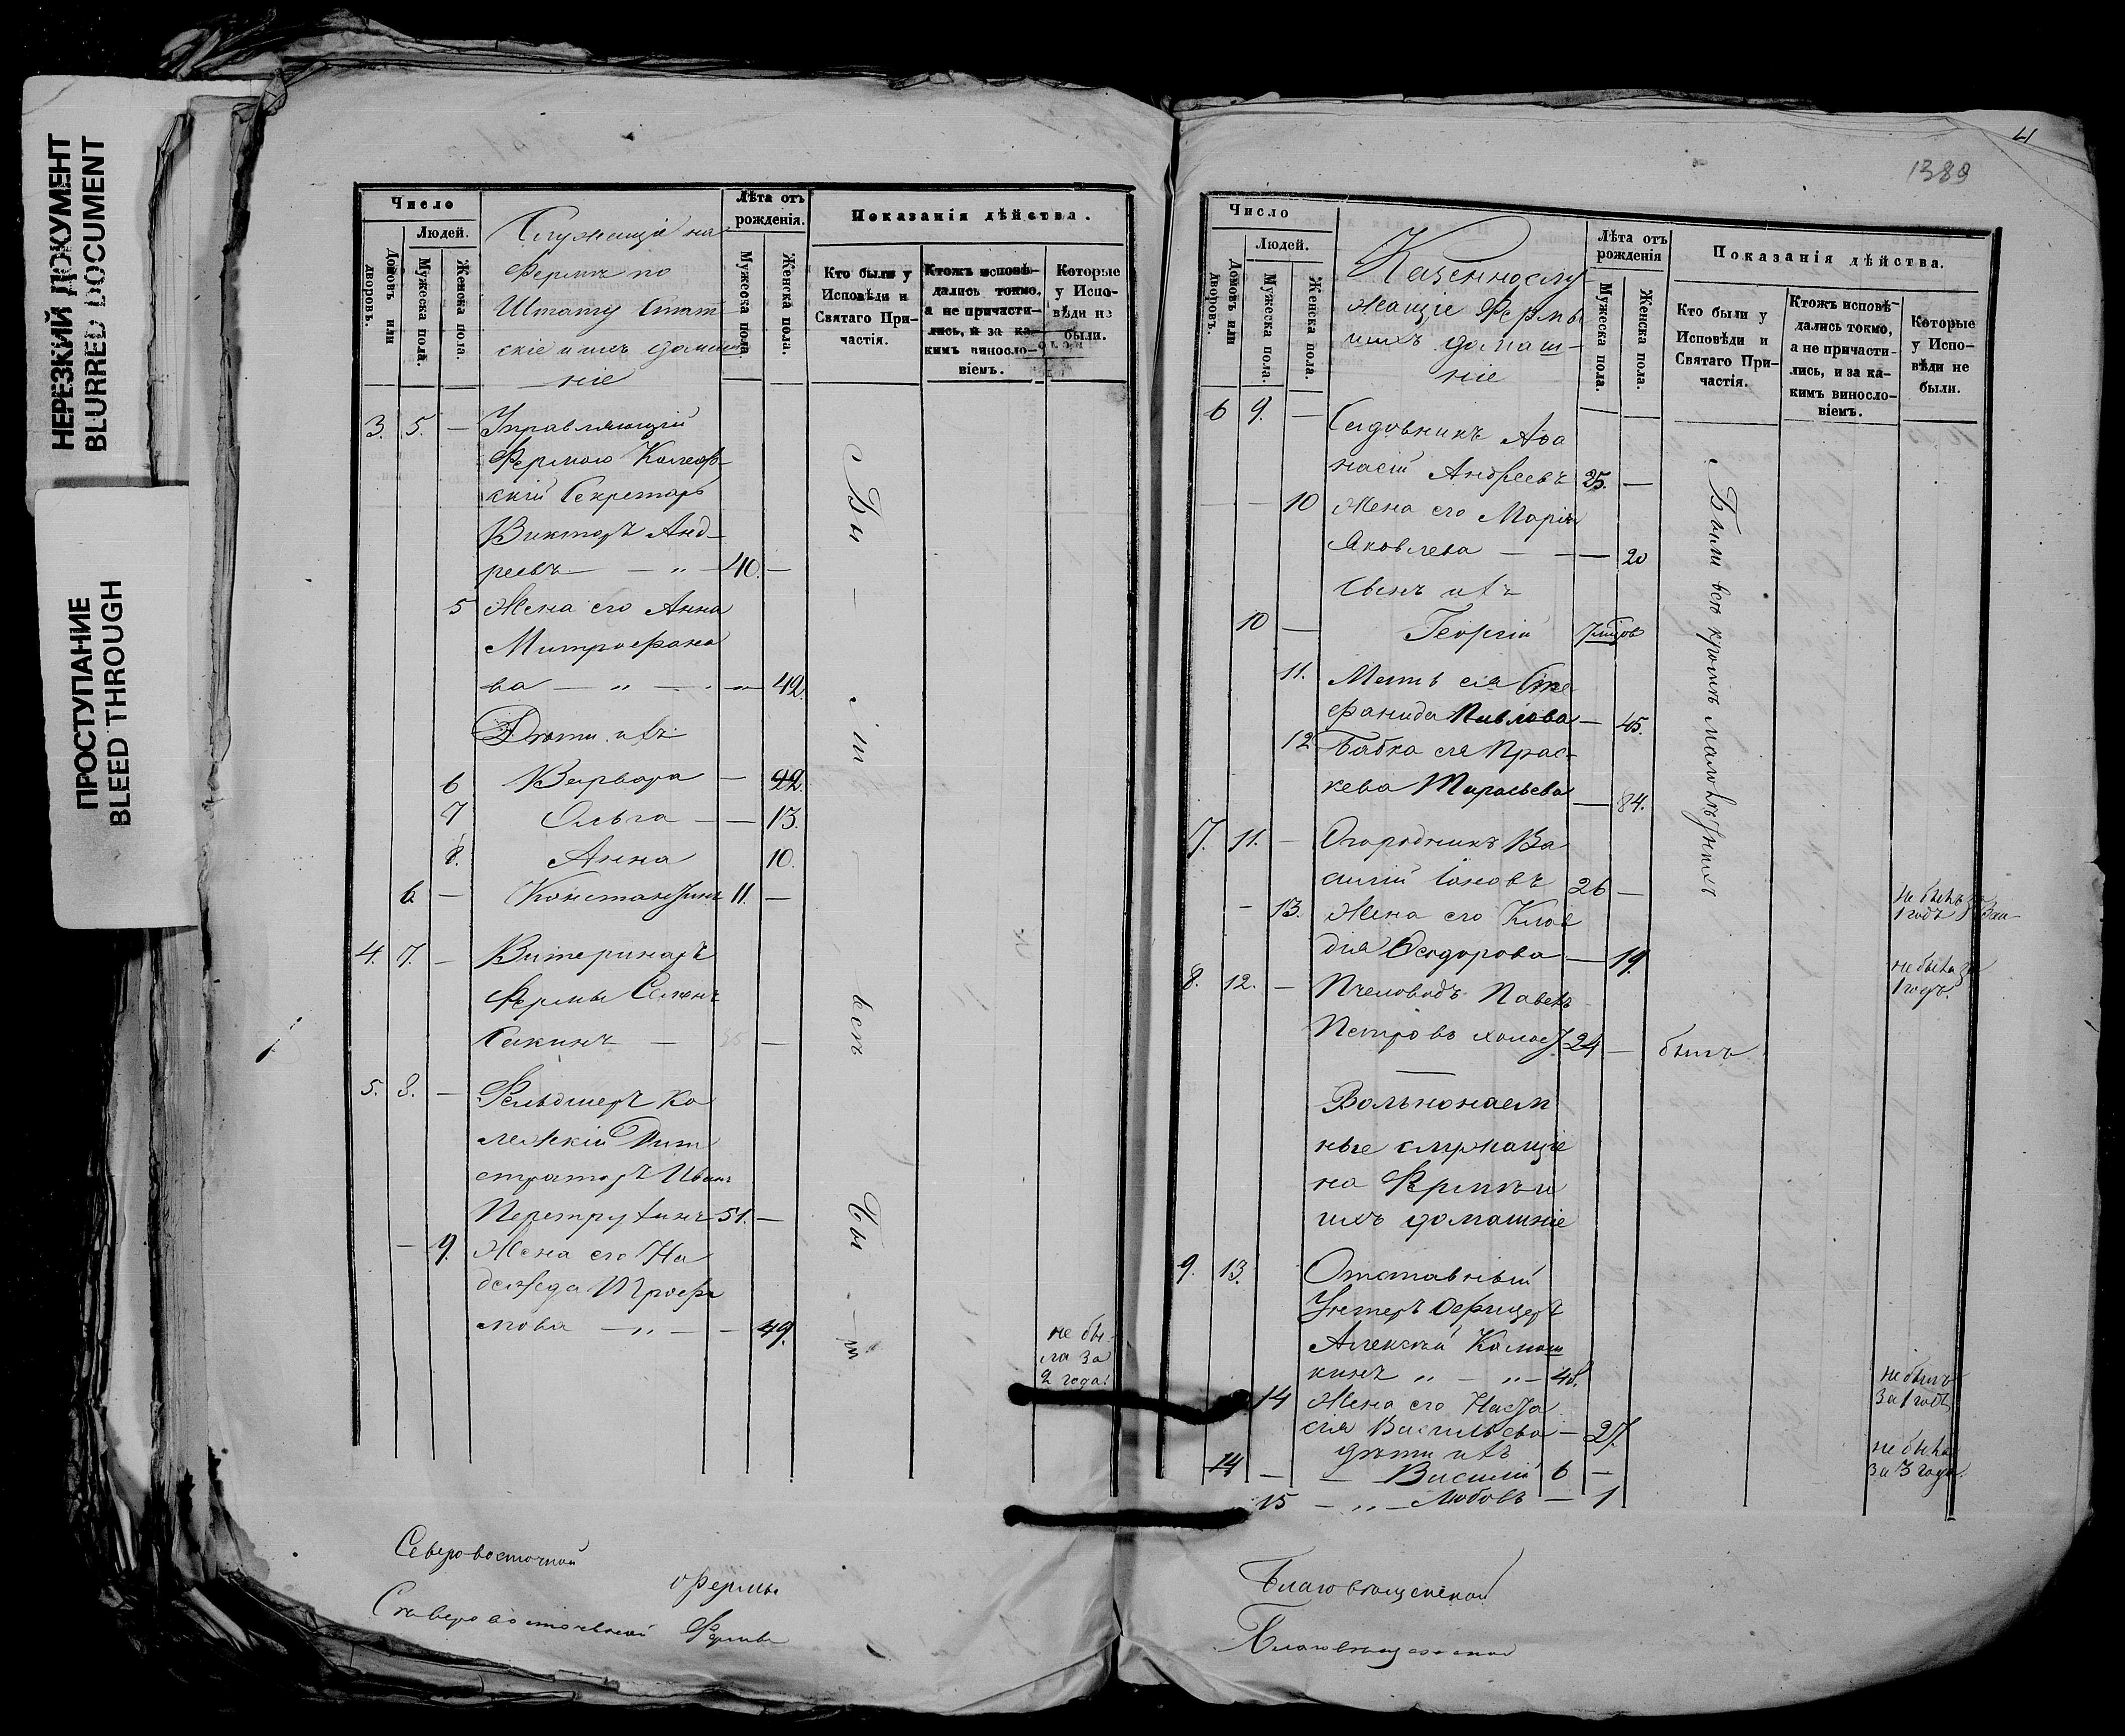 НЕРЕЗКИЙ ДОКУМЕНТ
BLURRED DOCUMENT
ПРОСТУПАНИЕ
BLEED THROUGH
Число
Людей.
Домовъ или дворовъ.
Мужеска пола.
Женска пола.
Служащіе на
Фермѣ по
Штату Стат
скіе и ихъ домаш
ніе
Лѣта отъ рожденія.
Мужеска пола.
Женска пола.
Показанія дѣйства.
Кто были у Исповѣди и Святаго Причастія.
Ктожъ исповѣдались токмо, а не причастились, и за какимъ винословіемъ.
Которые у Исповѣди не были.
3. 5. — Управляющій
Фермою Коллеж-
скій Секретарь
Викторъ Анд-
реевъ — „ — 40. —
5 Жена его Анна
Митрофано
ва — „ — 42.
Дѣти ихъ
6 Варвара — 22.
7 Ольга — 13.
8. Анна 10.
6 — Константинъ 11. —
4. 7. — Ветеринаръ
Фермы Семенъ
Сакинъ — 25 —
5. 8. — Фельдшеръ Ко
лежскій Реги
страторъ Иванъ
51. —
— 9. Жена его На
дежда Трофи
мова — „ — 49.
Бы — ли всѣ бы — ли
не бы-
ла за
2 года.
Северовосточной
Фермы
Северовосточной Фермы
1389
Число
Людей.
Домовъ или дворовъ.
Мужеска пола.
Женска пола.
Казеннослу
жащіе Фермы
и ихъ домаш-
ніе
Лѣта отъ рожденія
Мужеска пола.
Женска пола.
Показанія дѣйства.
Кто были у Исповѣди и Святаго Причастія.
Ктожъ исповѣдались токмо, а не причастились, и за какимъ винословіемъ.
Которые у Исповѣди не были.
6 9. — Садовникъ Афа
насій Андреевъ 25. —
— 10 Жена его Марія
Яковлева — — 20
Сынъ ихъ
10 — Георгій 7 мѣсцов
11. Мать ея Сте
фанида Павлова — 45.
12 Бабка ея Прас-
кева — 84.
7. 11. — Огородникъ Ва
силій Іоновъ 26 —
— 13. Жена его Клав
дія Ѳеодорова — 19.
8. 12. — Пчеловодъ Павелъ
Петровъ холост 24 — былъ
Были всѣ кромѣ малолѣтнихъ
не былъ за
1 годъ
не была за
1 годъ.
Вольнонаем
ные служащіе
на Фермѣ и
ихъ домашніе
9. 13. Отставный
Унтеръ Офицеръ
Алексѣй Камаш
кинъ „ — „ — 48.
14 Жена его Настя
сія Васильева — 27.
дѣти ихъ
14 — — Василій 6 —
15 — „ — Любовь — 1
не былъ
за 1 годъ
не была
за 3 года.
Благовѣщенской
Благовѣщенской